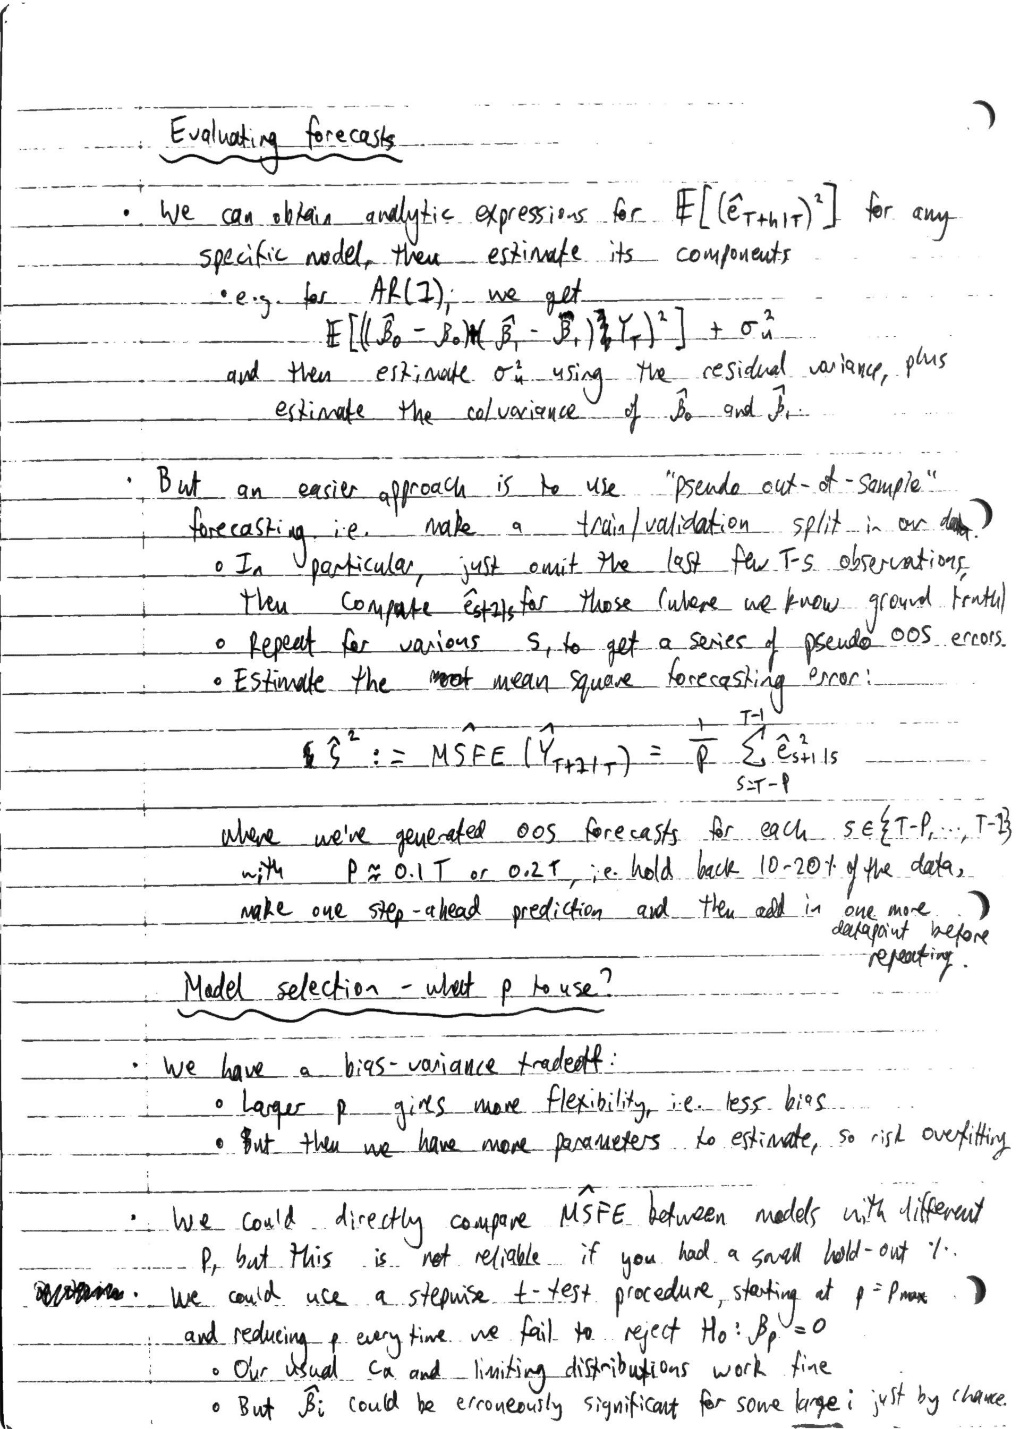 Evaluating forecasts
• We can obtain analytic expressions for 𝔼[(ê_{T+h|T})²] for any
specific model, then estimate its components
• e.g. for AR(1), we get
𝔼[((β̂₀ - β₀)+(β̂₁ - β₁)Y_T)²] + σ²_u
and then estimate σ²_u using the residual variance, plus
estimate the co/variance of β̂₀ and β̂₁.
• But an easier approach is to use "pseudo out-of-sample"
forecasting i.e. make a train/validation split in our data.
∘ In particular, just omit the last few T-s observations,
then compute ê_{s+1|s} for those (where we know ground truth)
∘ Repeat for various s, to get a series of pseudo OOS errors.
• Estimate the mean square forecasting error:
ŝ² := MŜFE (Ŷ_{T+1|T}) = 1/P Σ_{s=T-P}^{T-1} ê²_{s+1|s}
where we've generated OOS forecasts for each s∈{T-P,..., T-1}
with P ≈ 0.1T or 0.2T, i.e. hold back 10-20% of the data,
make one step-ahead prediction and then add in one more
datapoint before
repeating.
Model selection - what p to use?
• We have a bias-variance tradeoff:
∘ Larger p gives more flexibility, i.e. less bias
• But then we have more parameters to estimate, so risk overfitting
• We could directly compare MŜFE between models with different
p, but this is not reliable if you had a small hold-out %.
• We could use a stepwise t-test procedure, starting at p = p_max
and reducing p every time we fail to reject H₀: β_p = 0
∘ Our usual cα and limiting distributions work fine
∘ But β̂ᵢ could be erroneously significant for some large i just by chance.